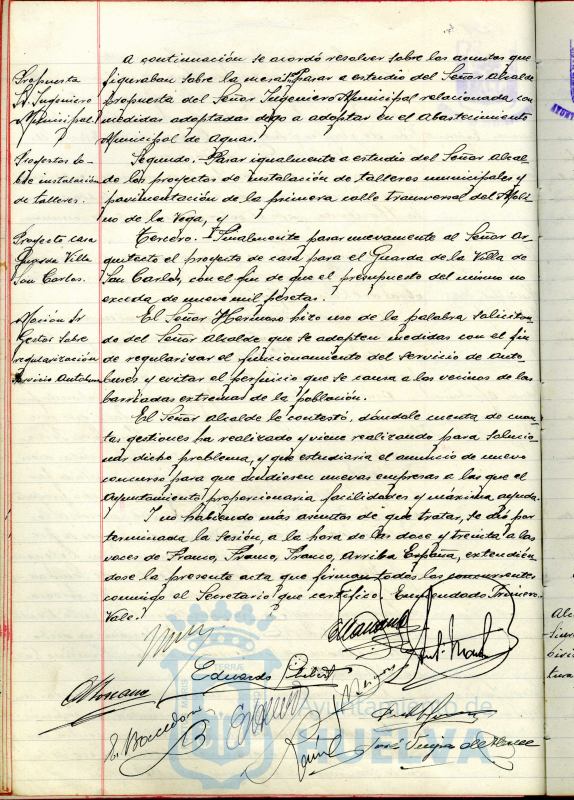 A continuación se acordó resolver sobre los asuntos que
figuraban sobre la mesa: Pasar a estudio del Señor Alcalde
propuesta del Señor Ingeniero Municipal relacionada con
medidas adoptadas digo a adoptar en el Abastecimiento
Municipal de Aguas.
Segundo.- Pasar igualmente a estudio del Señor Alcal-
de los proyectos de instalación de talleres municipales y
pavimentación de la primera calle transversal del Moli-
no de la Vega, y
Tercero.- Finalmente pasar nuevamente al Señor Ar-
quitecto el proyecto de casa para el Guarda de la Villa de
San Carlos, con el fin de que el presupuesto del mismo no
exceda de nueve mil pesetas.
El Señor Hermoso hizo uso de la palabra solicitan-
do del Señor Alcalde que se adopten medidas con el fin
de regularizar el funcionamiento del servicio de Auto-
buses y evitar el perjuicio que se causa a los vecinos de las
barriadas extremas de la población.
El Señor Alcalde le contestó, dándole cuenta de cuan-
tas gestiones ha realizado y viene realizando para solucio-
nar dicho problema, y que estudiaria el anuncio de nuevo
concurso para que acudiesen nuevas empresas a las que el
Ayuntamiento proporcionaria facilidades y máxima ayuda.
Y no habiendo más asuntos de que tratar, se dió por
terminada la sesión, a la hora de las doce y treinta a las
voces de Franco, Franco, Franco, Arriba España, extendién-
dose la presente acta que firman todos los concurrentes
conmigo el Secretario que certifico. Enmendado Primero.
Vale.
Propuesta
Sr. Ingeniero
Municipal.
Proyectos so-
bre instalación
de talleres.
Proyecto casa
Guarda Villa
San Carlos.
Moción Sr
sobre
regularización
servicio Autobuses
Eduardo
José
Ayuntamiento de
HUELVA